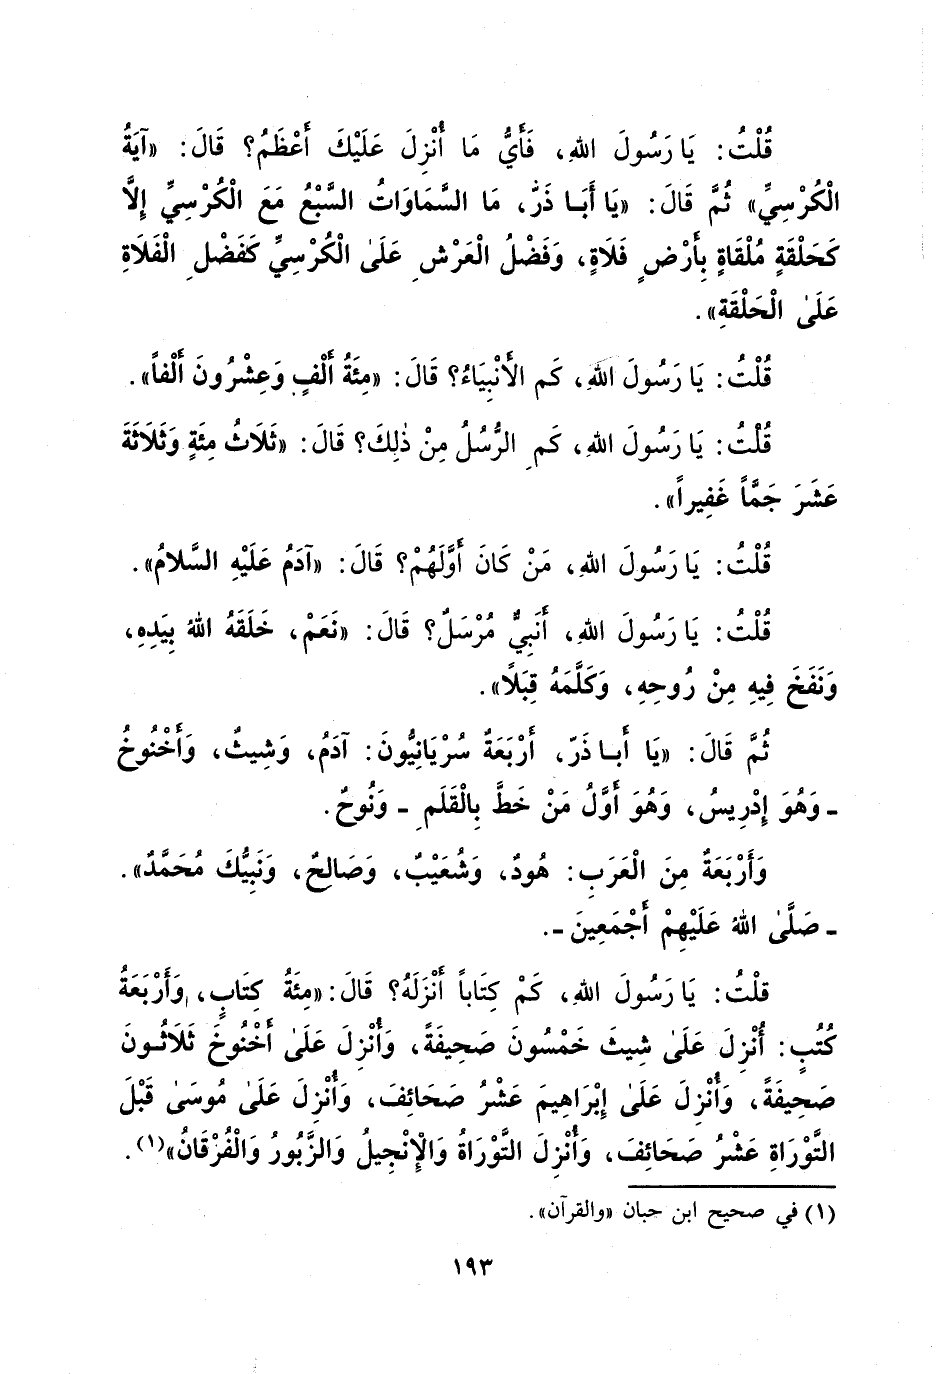 قُلْتُ: يَا رَسُولَ اللهِ، فَأَيُّ مَا أُنْزِلَ عَلَيْكَ أَعْظَمُ؟ قَالَ: «آيَةُ
الْكُرْسِيِّ» ثُمَّ قَالَ: «يَا أَبَـا ذَرٍّ، مَا السَّمَاوَاتُ السَّبْعُ مَعَ الْكُرْسِيِّ إِلَّا
كَحَلْقَةٍ مُلْقَاةٍ بِأَرْضٍ فَلَاةٍ، وَفَضْلُ الْعَرْشِ عَلَىٰ الْكُرْسِيِّ كَفَضْلِ الْفَلَاةِ
عَلَىٰ الْحَلْقَةِ».
قُلْتُ: يَا رَسُولَ اللهِ، كَمِ الأَنْبِيَاءُ؟ قَالَ: «مِئَةُ أَلْفٍ وَعِشْرُونَ أَلْفاً».
قُلْتُ: يَا رَسُولَ اللهِ، كَمِ الرُّسُلُ مِنْ ذٰلِكَ؟ قَالَ: «ثَلَاثُ مِئَةٍ وَثَلَاثَةَ
عَشَرَ جَمًّا غَفِيراً».
قُلْتُ: يَا رَسُولَ اللهِ، مَنْ كَانَ أَوَّلَهُمْ؟ قَالَ: «آدَمُ عَلَيْهِ السَّلامُ».
قُلْتُ: يَا رَسُولَ اللهِ، أَنَبِيٌّ مُرْسَلٌ؟ قَالَ: «نَعَمْ، خَلَقَهُ اللهُ بِيَدِهِ،
وَنَفَخَ فِيهِ مِنْ رُوحِهِ، وَكَلَّمَهُ قِبَلًا».
ثُمَّ قَالَ: «يَا أَبـا ذَرّ، أَرْبَعَةٌ سُرْيَانِيُّونَ: آدَمُ، وَشِيثٌ، وَأَخْنُوخُ
ـ وَهُوَ إِدْرِيسُ، وَهُوَ أَوَّلُ مَنْ خَطَّ بِالْقَلَمِ ـ وَنُوحٌ.
وَأَرْبَعَةٌ مِنَ الْعَرَبِ: هُودٌ، وَشُعَيْبٌ، وَصَالِحٌ، وَنَبِيُّكَ مُحَمَّدٌ».
ـ صَلَّىٰ اللهُ عَلَيْهِمْ أَجْمَعِينَ ـ.
قلْتُ: يَا رَسُولَ اللهِ، كَمْ كِتَاباً أَنْزَلَهُ؟ قَالَ: «مِئَةُ كِتَابٍ، وَأَرْبَعَةُ
كُتُبٍ: أُنْزِلَ عَلَىٰ شِيثَ خَمْسُونَ صَحِيفَةً، وَأُنْزِلَ عَلَىٰ أَخْنُوخَ ثَلَاثُـونَ
صَحِيفَةً، وَأُنْزِلَ عَلَىٰ إِبْرَاهِيمَ عَشْرُ صَحَائِفَ، وَأُنْزِلَ عَلَىٰ مُوسَىٰ قَبْلَ
التَّوْرَاةِ عَشْرُ صَحَائِفَ، وَأُنْزِلَ التَّوْرَاةُ وَالْإِنْجِيلُ وَالزَّبُورُ وَالْفُرْقَانُ»(١).
(١) في صحيح ابن حبان «والقرآن».
١٩٣